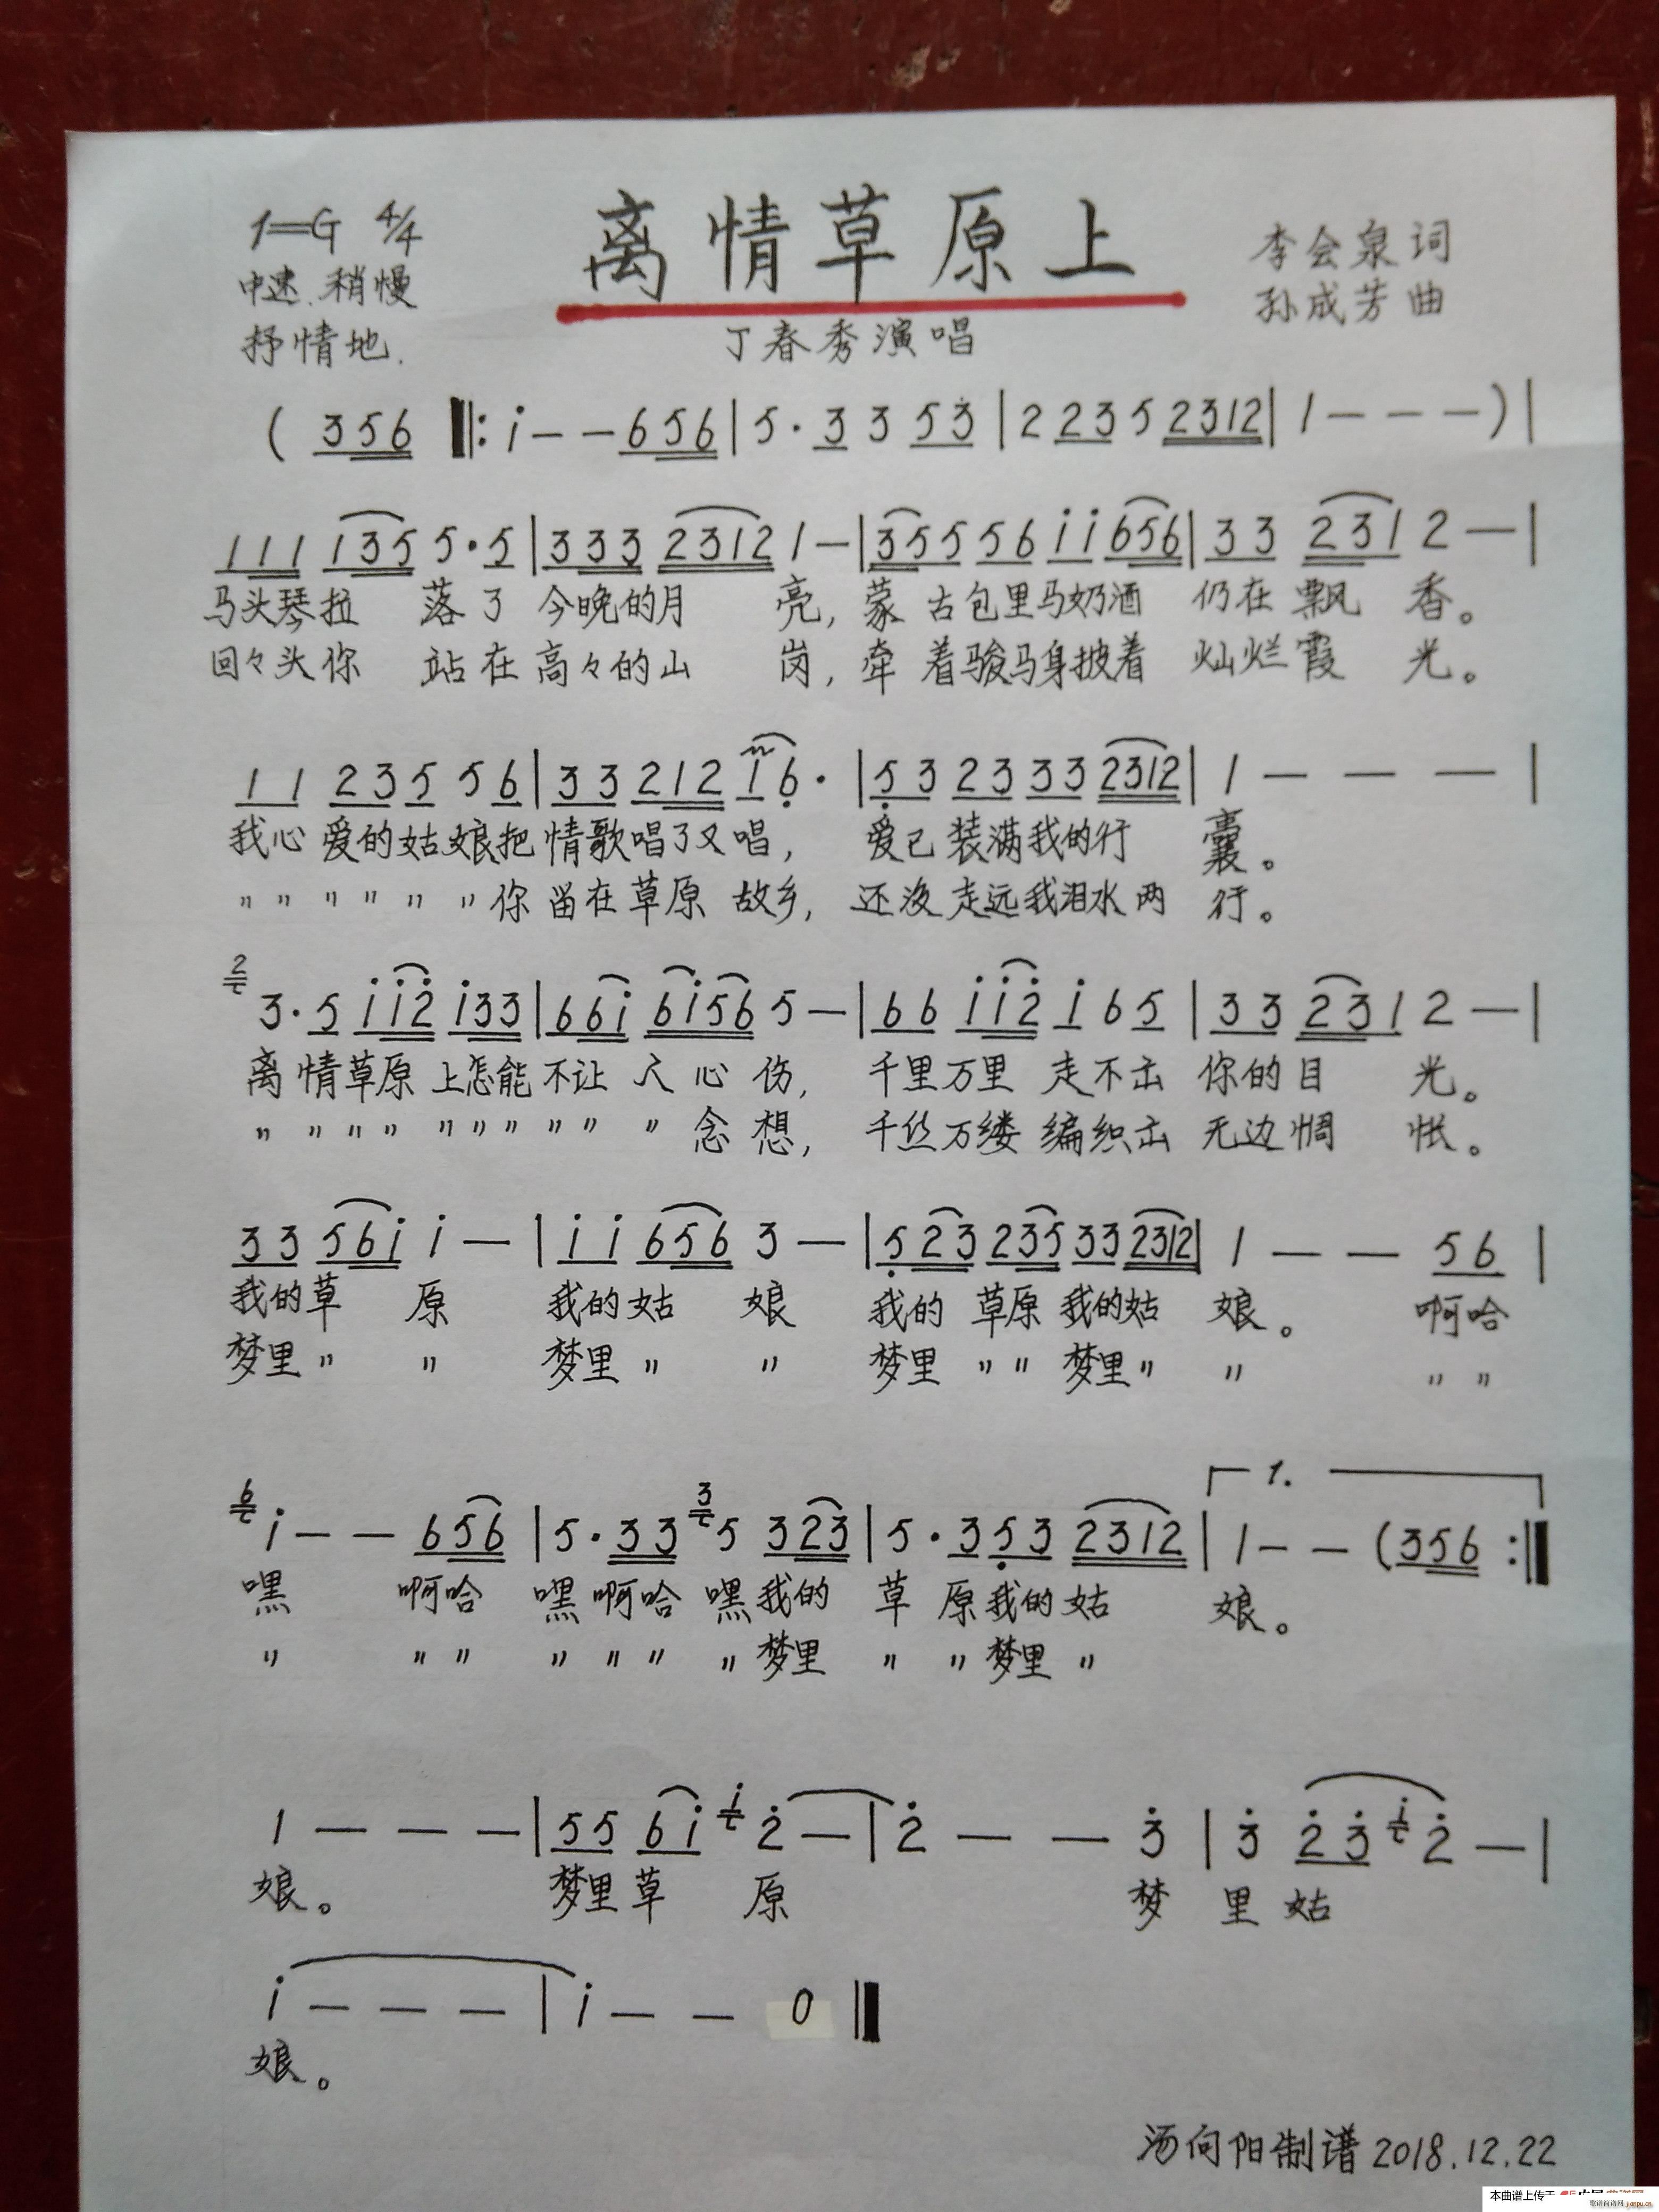 1=G 4/4
离情草原上
李会泉 词
中速.稍慢
孙成芳 曲
抒情地.
丁春秀演唱
( 356 ‖: i - - 656 | 5 · 3 3 53 | 2 223 5 2312 | 1 - - - ) |
111 135 5·5 | 333 2312 1 - | 355 56 ii 656 | 33 231 2 - |
马头琴拉 落了 今晚的月 亮, 蒙古包里马奶酒 仍在飘 香。
回々头你 站在 高々的山 岗, 牵着骏马身披着 灿烂霞 光。
11 235 56 | 33 212 16· | 53 23 33 2312 | 1 - - - |
我心爱的姑娘把 情歌唱了又唱, 爱已装满我的行 囊。
〃 〃 〃 〃 〃 〃 你 留在草原 故乡, 还没走远我泪水两 行。
2
3·5 ii2 i33 | 66i 6i56 5 - | 66 ii2 i 65 | 33 231 2 - |
离情草原 上怎能 不让 人心 伤, 千里万里 走不出 你的目 光。
〃 〃 〃 〃 〃 〃 〃 〃 〃 〃 念 想, 千丝万缕 编织出 无边惆 怅。
33 56i i - | ii 656 3 - | 523 235 33 2312 | 1 - - 56 |
我的草 原 我的姑 娘 我的 草原 我的姑 娘。 啊哈
梦里〃 〃 梦里〃 〃 梦里 〃 〃 梦里〃 〃 〃 〃
1.
6 i - - 656 | 5·33 3 5 323 | 5·3 53 2312 | 1 - - (356 :‖
嘿 啊哈 嘿啊哈 嘿我的 草 原我的姑 娘。
〃 〃 〃 〃 〃 〃 〃梦里 〃 〃梦里〃
1 - - - | 55 6i i 2 - | 2 - - 3 | 3 23 i 2 - |
娘。 梦里草 原 梦 里姑
i - - - | i - - 0 ‖
娘。
汤向阳制谱2018.12.22
本曲谱上传于
歌谱简谱网